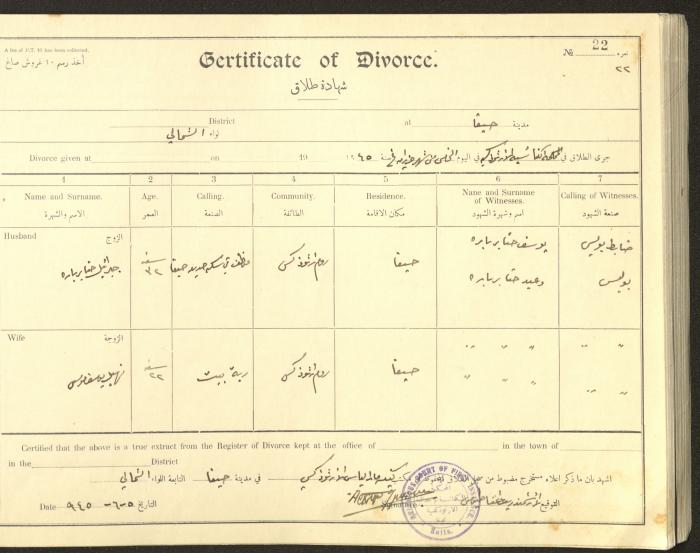 A fee of P.T. 10 has been collected.
أخذ رسم ١٠ غروش صاغ
Certificate of Divorce.
شهادة طلاق
№ 22 نمره
٢٢
District at مدينة حيفا
لواء الشمالي
Divorce given at on 19 سنة ١٩٤٥ في اليوم الخامس من شهر جرى الطلاق في
1 2 3 4 5 6 7
Name and Surname. Age. Calling. Community. Residence. Name and Surname of Witnesses. Calling of Witnesses.
الاسم والشهرة العمر الصنعة الطائفة مكان الاقامة اسم وشهرة الشهود صنعة الشهود
Husband الزوج
جبرائيل حنا بربارة سنة ٣٢ موظف في سكة حديد حيفا روم ارثوذكسي حيفا يوسف حنا بربارة ضابط بوليس
وديع حنا بربارة بوليس
Wife الزوجة
سنة ٢٢ ربة بيت روم ارثوذكسي حيفا
Certified that the above is a true extract from the Register of Divorce kept at the office of in the town of
in the District
اشهد بان ما ذكر اعلاه مستخرج مضبوط من في مدينة حيفا التابعة اللواء الشمالي
Date التاريخ ٥-٦-٩٤٥ Signature التوقيع
COURT OF FIRST
Haifa.